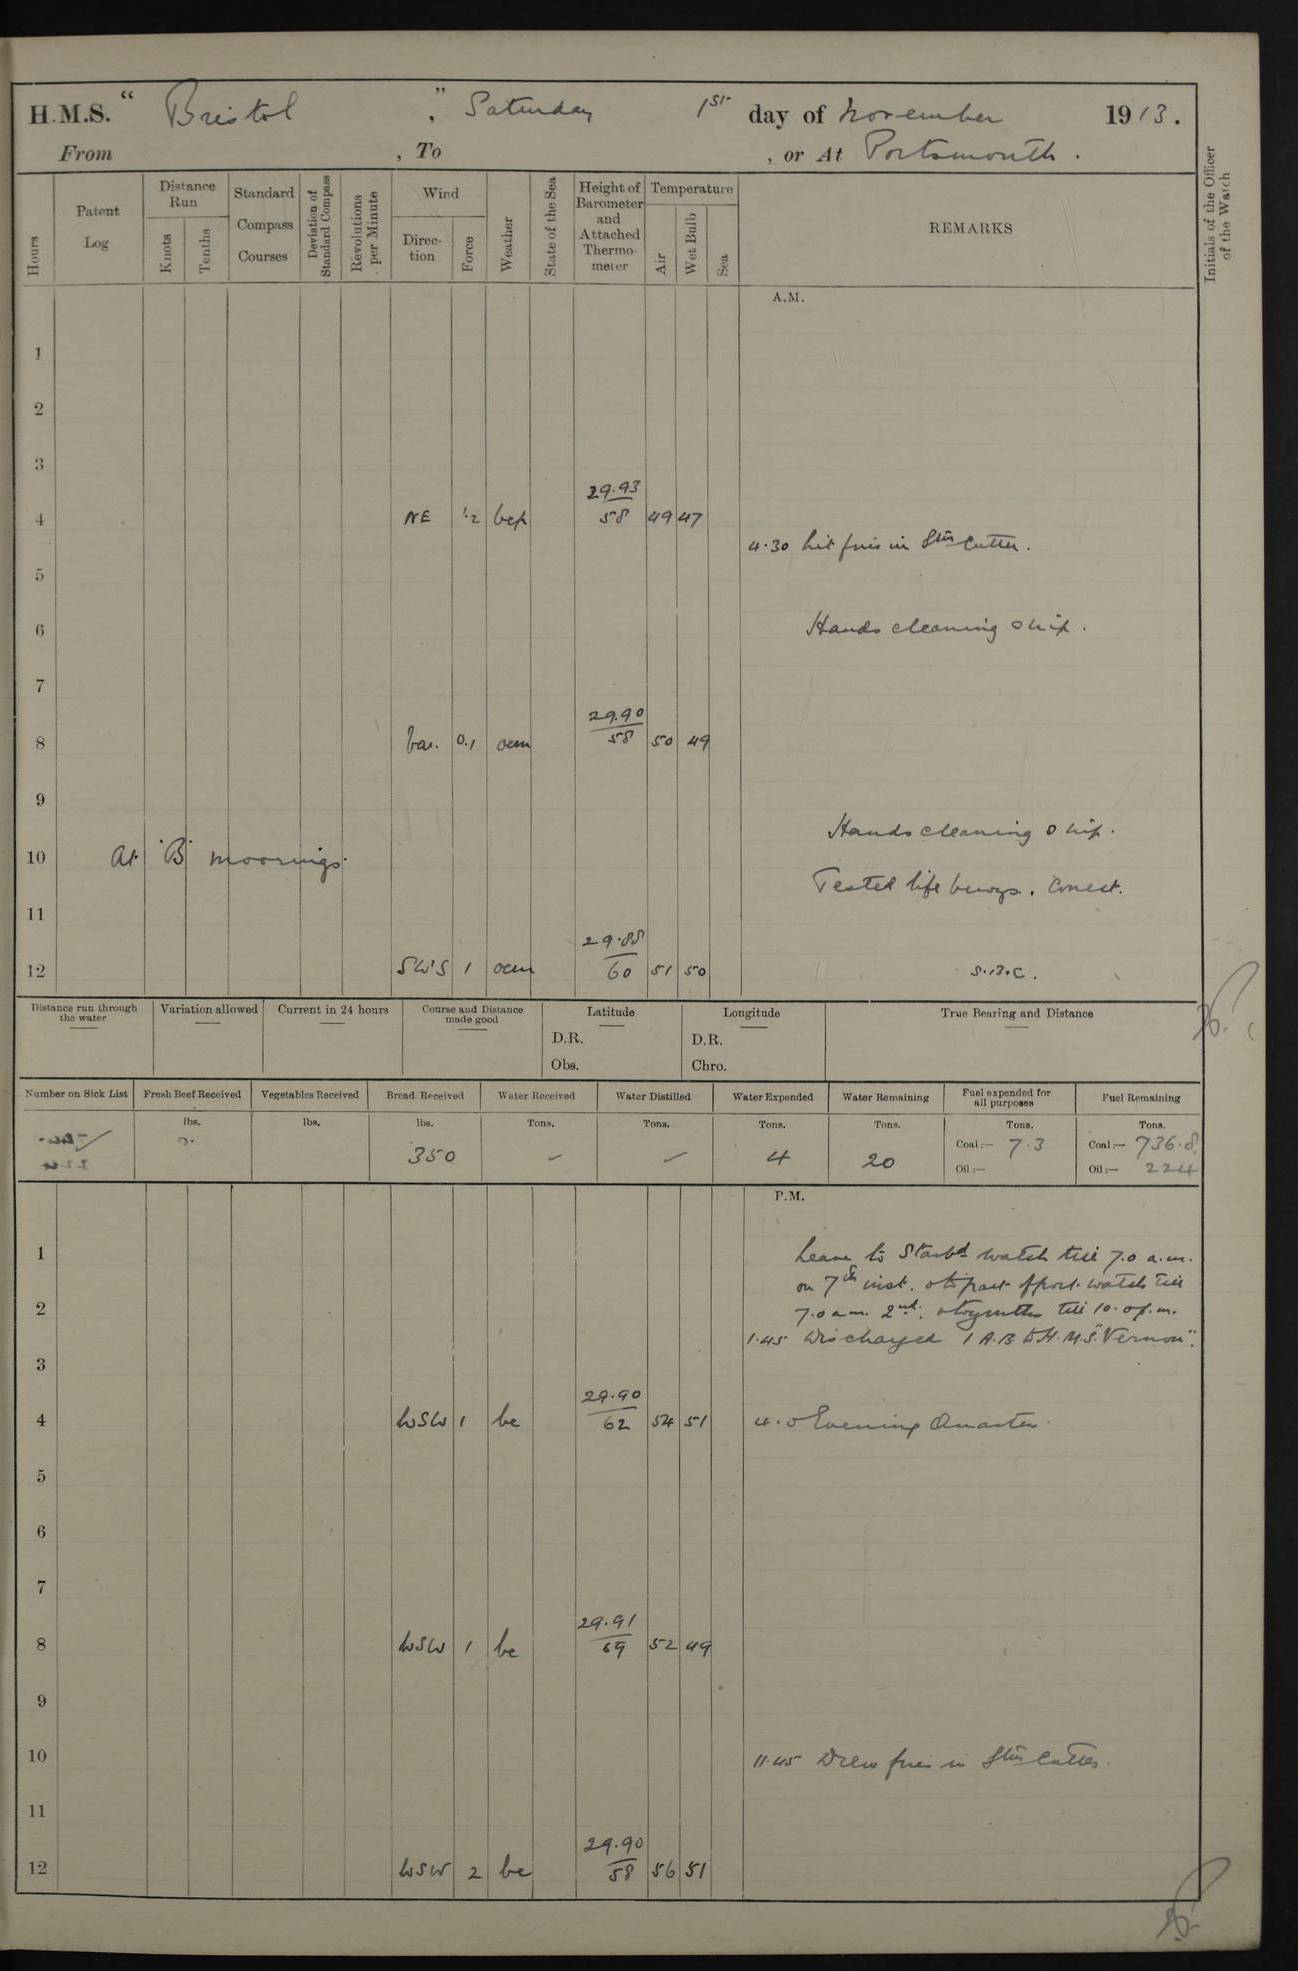 H.M.S. " Bristol ", Saturday 1st day of November 1913.
From , To , or At Portsmouth.
Hours
Patent Log
Distance Run
Knots
Tenths
Standard Compass Courses
Deviation of Standard Compass
Revolutions per Minute
Wind
Direction
Force
Weather
State of the Sea
Height of Barometer and Attached Thermometer
Temperature
Air
Wet Bulb
Sea
REMARKS
Initials of the Officer of the Watch
A.M.
1
2
3
29.93
4 NE 1.2 bcp 58 49 47
4.30 Lit fires in Stm Cutter.
5
6 Hands cleaning ship.
7
29.90
8 0.1 ocm 58 50 49
9
Hands cleaning ship.
10 At 'B' moorings.
Tested life buoys. Correct.
11
29.88
12 SW'S 1 ocm 60 51 50 S.B.C.
Distance run through the water
Variation allowed
Current in 24 hours
Course and Distance made good
Latitude
D.R.
Obs.
Longitude
D.R.
Chro.
True Bearing and Distance
Number on Sick List
Fresh Beef Received
Vegetables Received
Bread Received
Water Received
Water Distilled
Water Expended
Water Remaining
Fuel expended for all purposes
Fuel Remaining
lbs. lbs. lbs. Tons. Tons. Tons. Tons. Tons. Tons.
350 – – 4 20 Coal:— 7.3 Coal:— 736.8
Oil:— Oil:— 224
P.M.
1 Leave to Starbd watch till 7.0 a.m.
on 7th inst. & to part of port watch till
2 7.0 a.m. 2nd. till 10.0 p.m.
1.45 Discharged 1 A.B. to H.M.S. "Vernon".
3
29.90
4 WSW 1 bc 62 54 51 4.0 Evening Quarters
5
6
7
29.91
8 WSW 1 bc 69 52 49
9
10 11.45 Drew fires in Stm Cutter.
11
29.90
12 WSW 2 bc 58 56 51